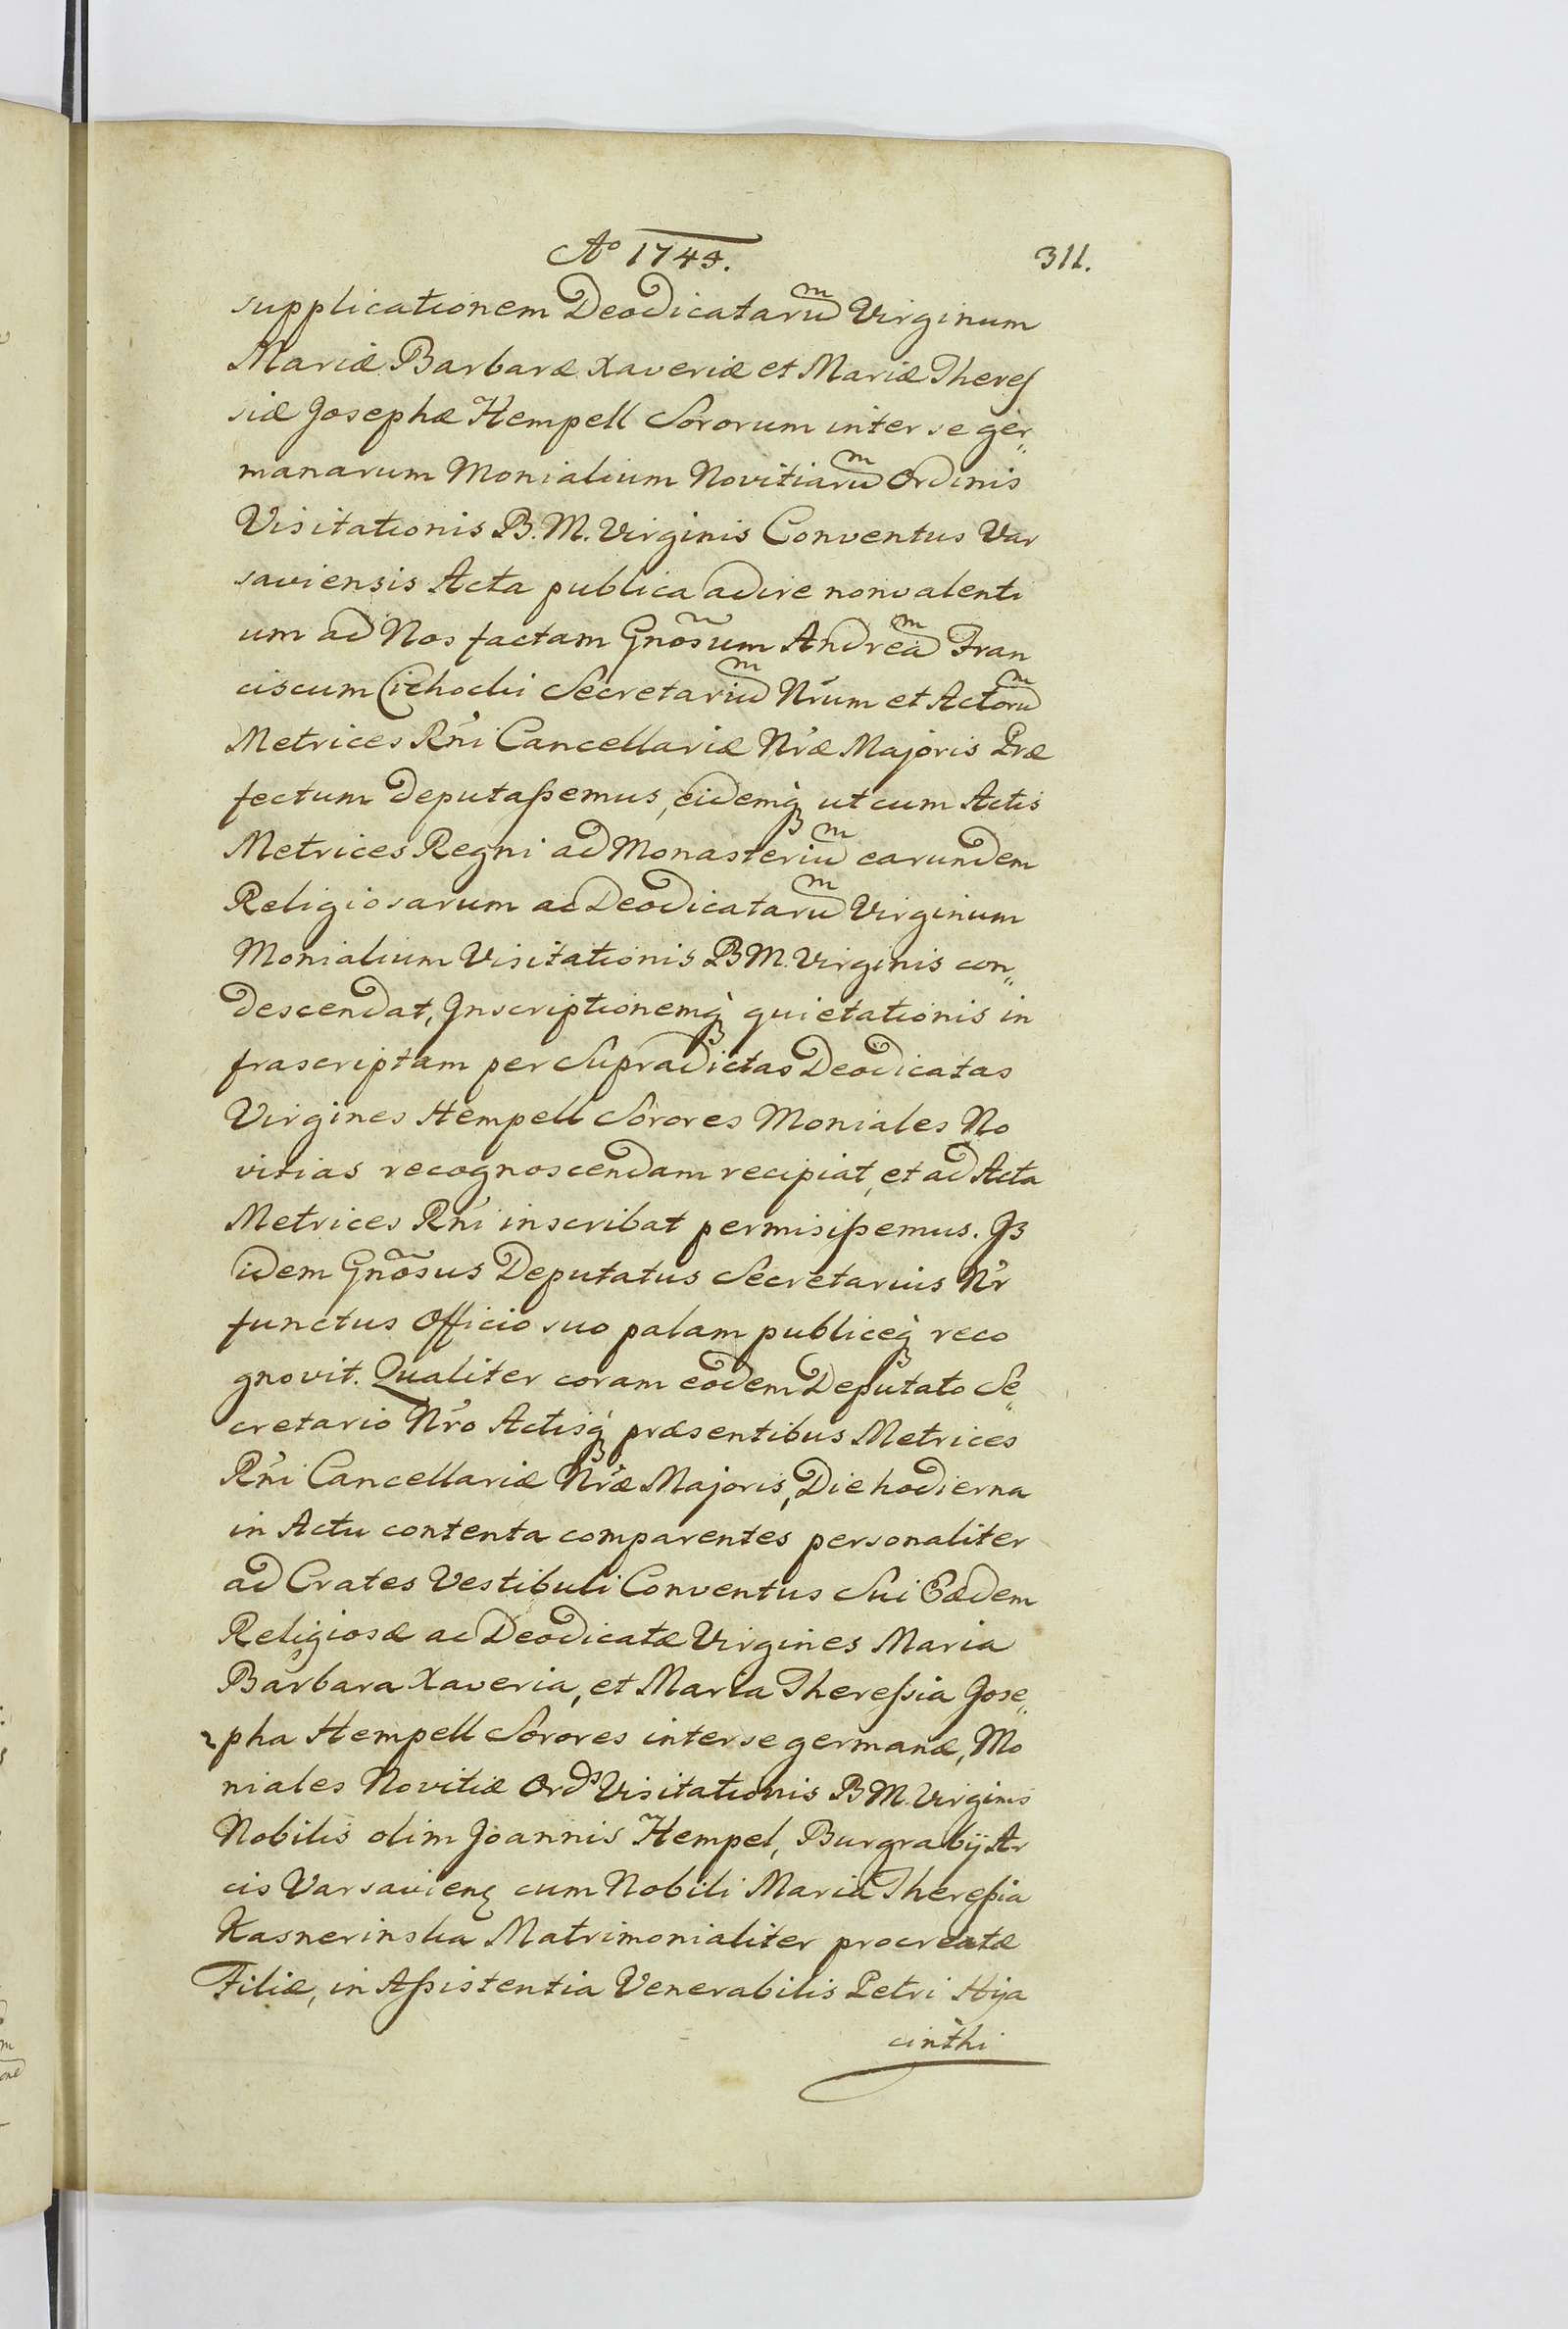 Aº 1743. 311.
supplicationem Deodicatarum Virginum
Mariæ Barbaræ Xaveriæ et Mariæ Theres
siæ Josephæ Hempell Sororum inter se ger„
manarum Monialium Novitiarum Ordinis
Visitationis B. M. Virginis Conventus Var
saviensis Acta publica adire nonvalenti
um ad Nos factam Gnõsum Andream Fran
ciscum Cichocki Secretarium Nrum et Actorum
Metrices Rni Cancellariæ Nræ Majoris Præ
fectum deputaßemus, eidemq ut cum Actis
Metrices Regni ad Monasterium earundem
Religiosarum ac Deodicatarum Virginum
Monialium Visitationis BM. Virginis con„
descendat, Inscriptionemq quietationis in
frascriptam per Supradictas Deodicatas
Virgines Hempell Sorores Moniales No
vitias recognoscendam recipiat, et ad Acta
Metrices Rni inscribat permisißemus. Is
idem Gnõsus Deputatus Secretarius Nr
functus Officio suo palam publiceq reco
gnovit. Qualiter coram eodem Deputato Se„
cretario Nro Actisq præsentibus Metrices
Rni Cancellariæ Nræ Majoris, Die hodierna
in Actu contenta comparentes personaliter
ad Crates Vestibuli Conventus Sui Eædem
Religiosæ ac Deodicatæ Virgines Maria
Barbara Xaveria, et Maria Theresia Jose„
pha Hempell Sorores inter se germanæ, Mo
niales Novitiæ Ords Visitationis BM. Virginis
Nobilis olim Joannis Hempel, Burgrabij Ar
cis Varsavien cum Nobili Maria Thereßia
Kasnerinska Matrimonialiter procreatæ
Filiæ, in Aßistentia Venerabilis Petri Hija
cinthi